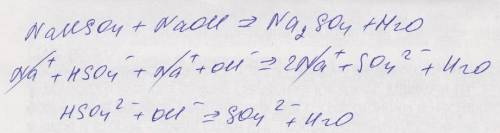 NaHSO₄ + NaOH ⇒ Na₂SO₄ + H₂O
Na⁺ + HSO₄⁻ + Na⁺ + OH⁻ ⇒ 2Na⁺ + SO₄²⁻ + H₂O
HSO₄²⁻ + OH⁻ ⇒ SO₄²⁻ + H₂O